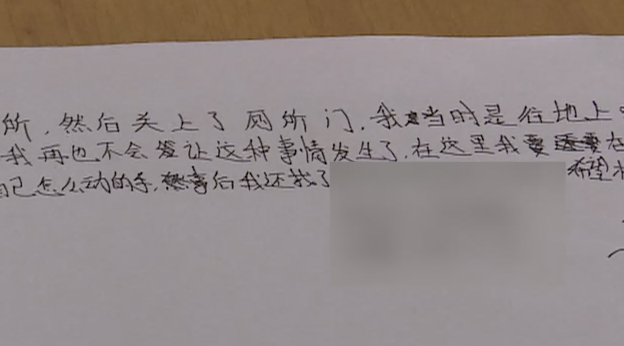 所,然后关上了厕所门,我当时是往地上
我再也不会让这种事情发生了,在这里我要在
自己怎么动的手,事后我还找了 希望